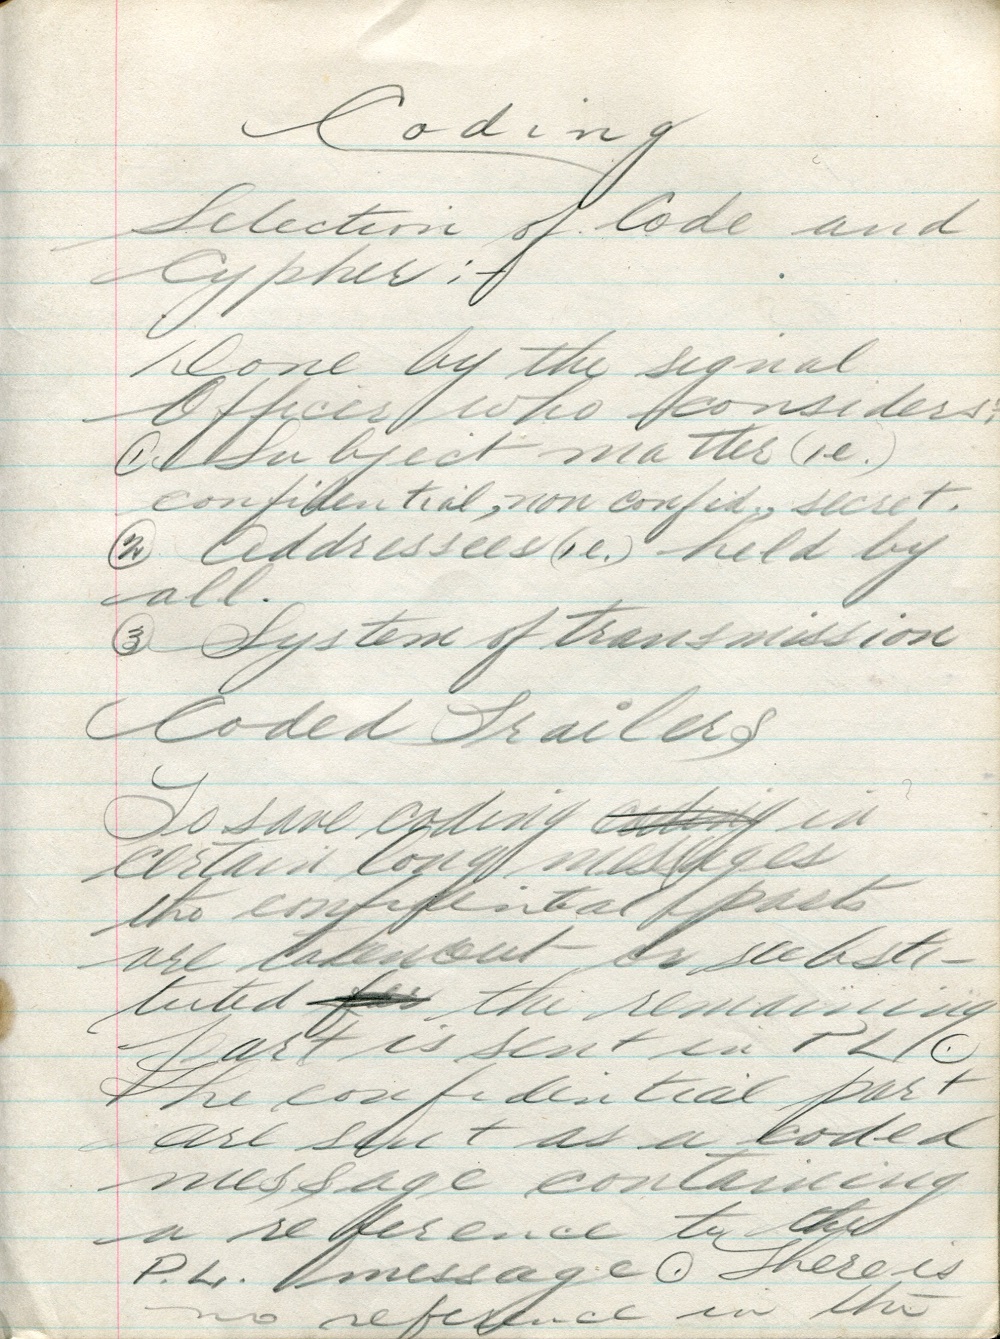 Coding
Selection of Code and
Cypher :-
Done by the signal
Officer who considers:
①. Subject matter (i.e.)
confidential, non confid., secret.
② Addressees (i.e.) held by
all.
③ System of transmission
Coded Trailers
To save coding coding in
certain long messages
the confidential parts
are taken out or substi-
tuted for the remaining
part is sent in P L ⊙
The confidential part
are sent as a coded
message containing
a reference to the
P.L. message ⊙ There is
no reference in the